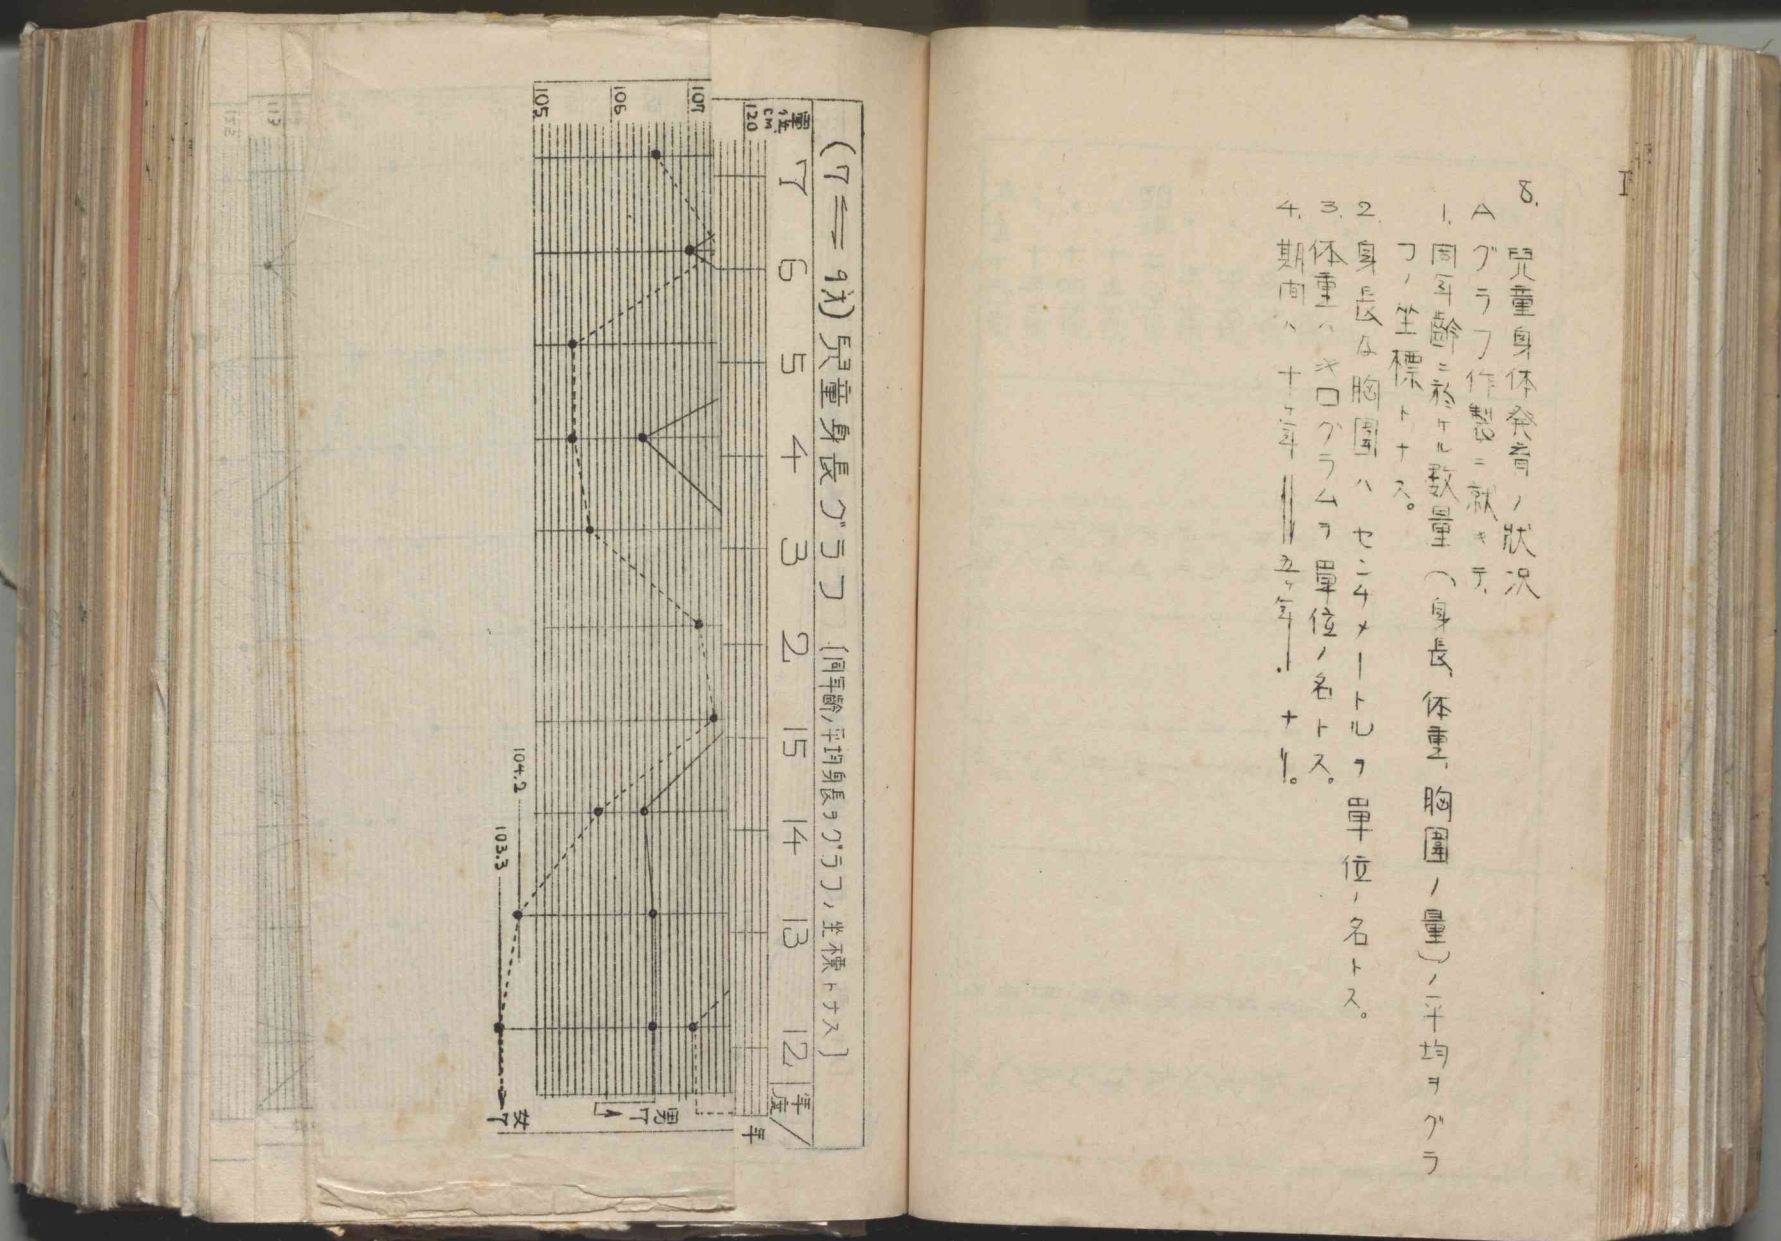 8. 兒童身体発育ノ狀况
A グラフ作製ニ就キテ、
1. 同年齡ニ於ケル数量(身長、体重、胸圍ノ量)ノ平均ヲグラ
フノ坐標トナス。
2. 身長及胸圍ハ センチメートルヲ單位ノ名トス。
3. 体重ハ キログラムヲ單位ノ名トス。
4. 期间ハ 十ヶ年 五ヶ年 ナリ。
兒童身長グラフ (同年齡ノ平均身長ヲグラフノ坐標トナス)
單位 CM. 7 6 5 4 3 2 15 14 13 12 年度
120 年
107
106
105
104.2
103.3
男7
女7